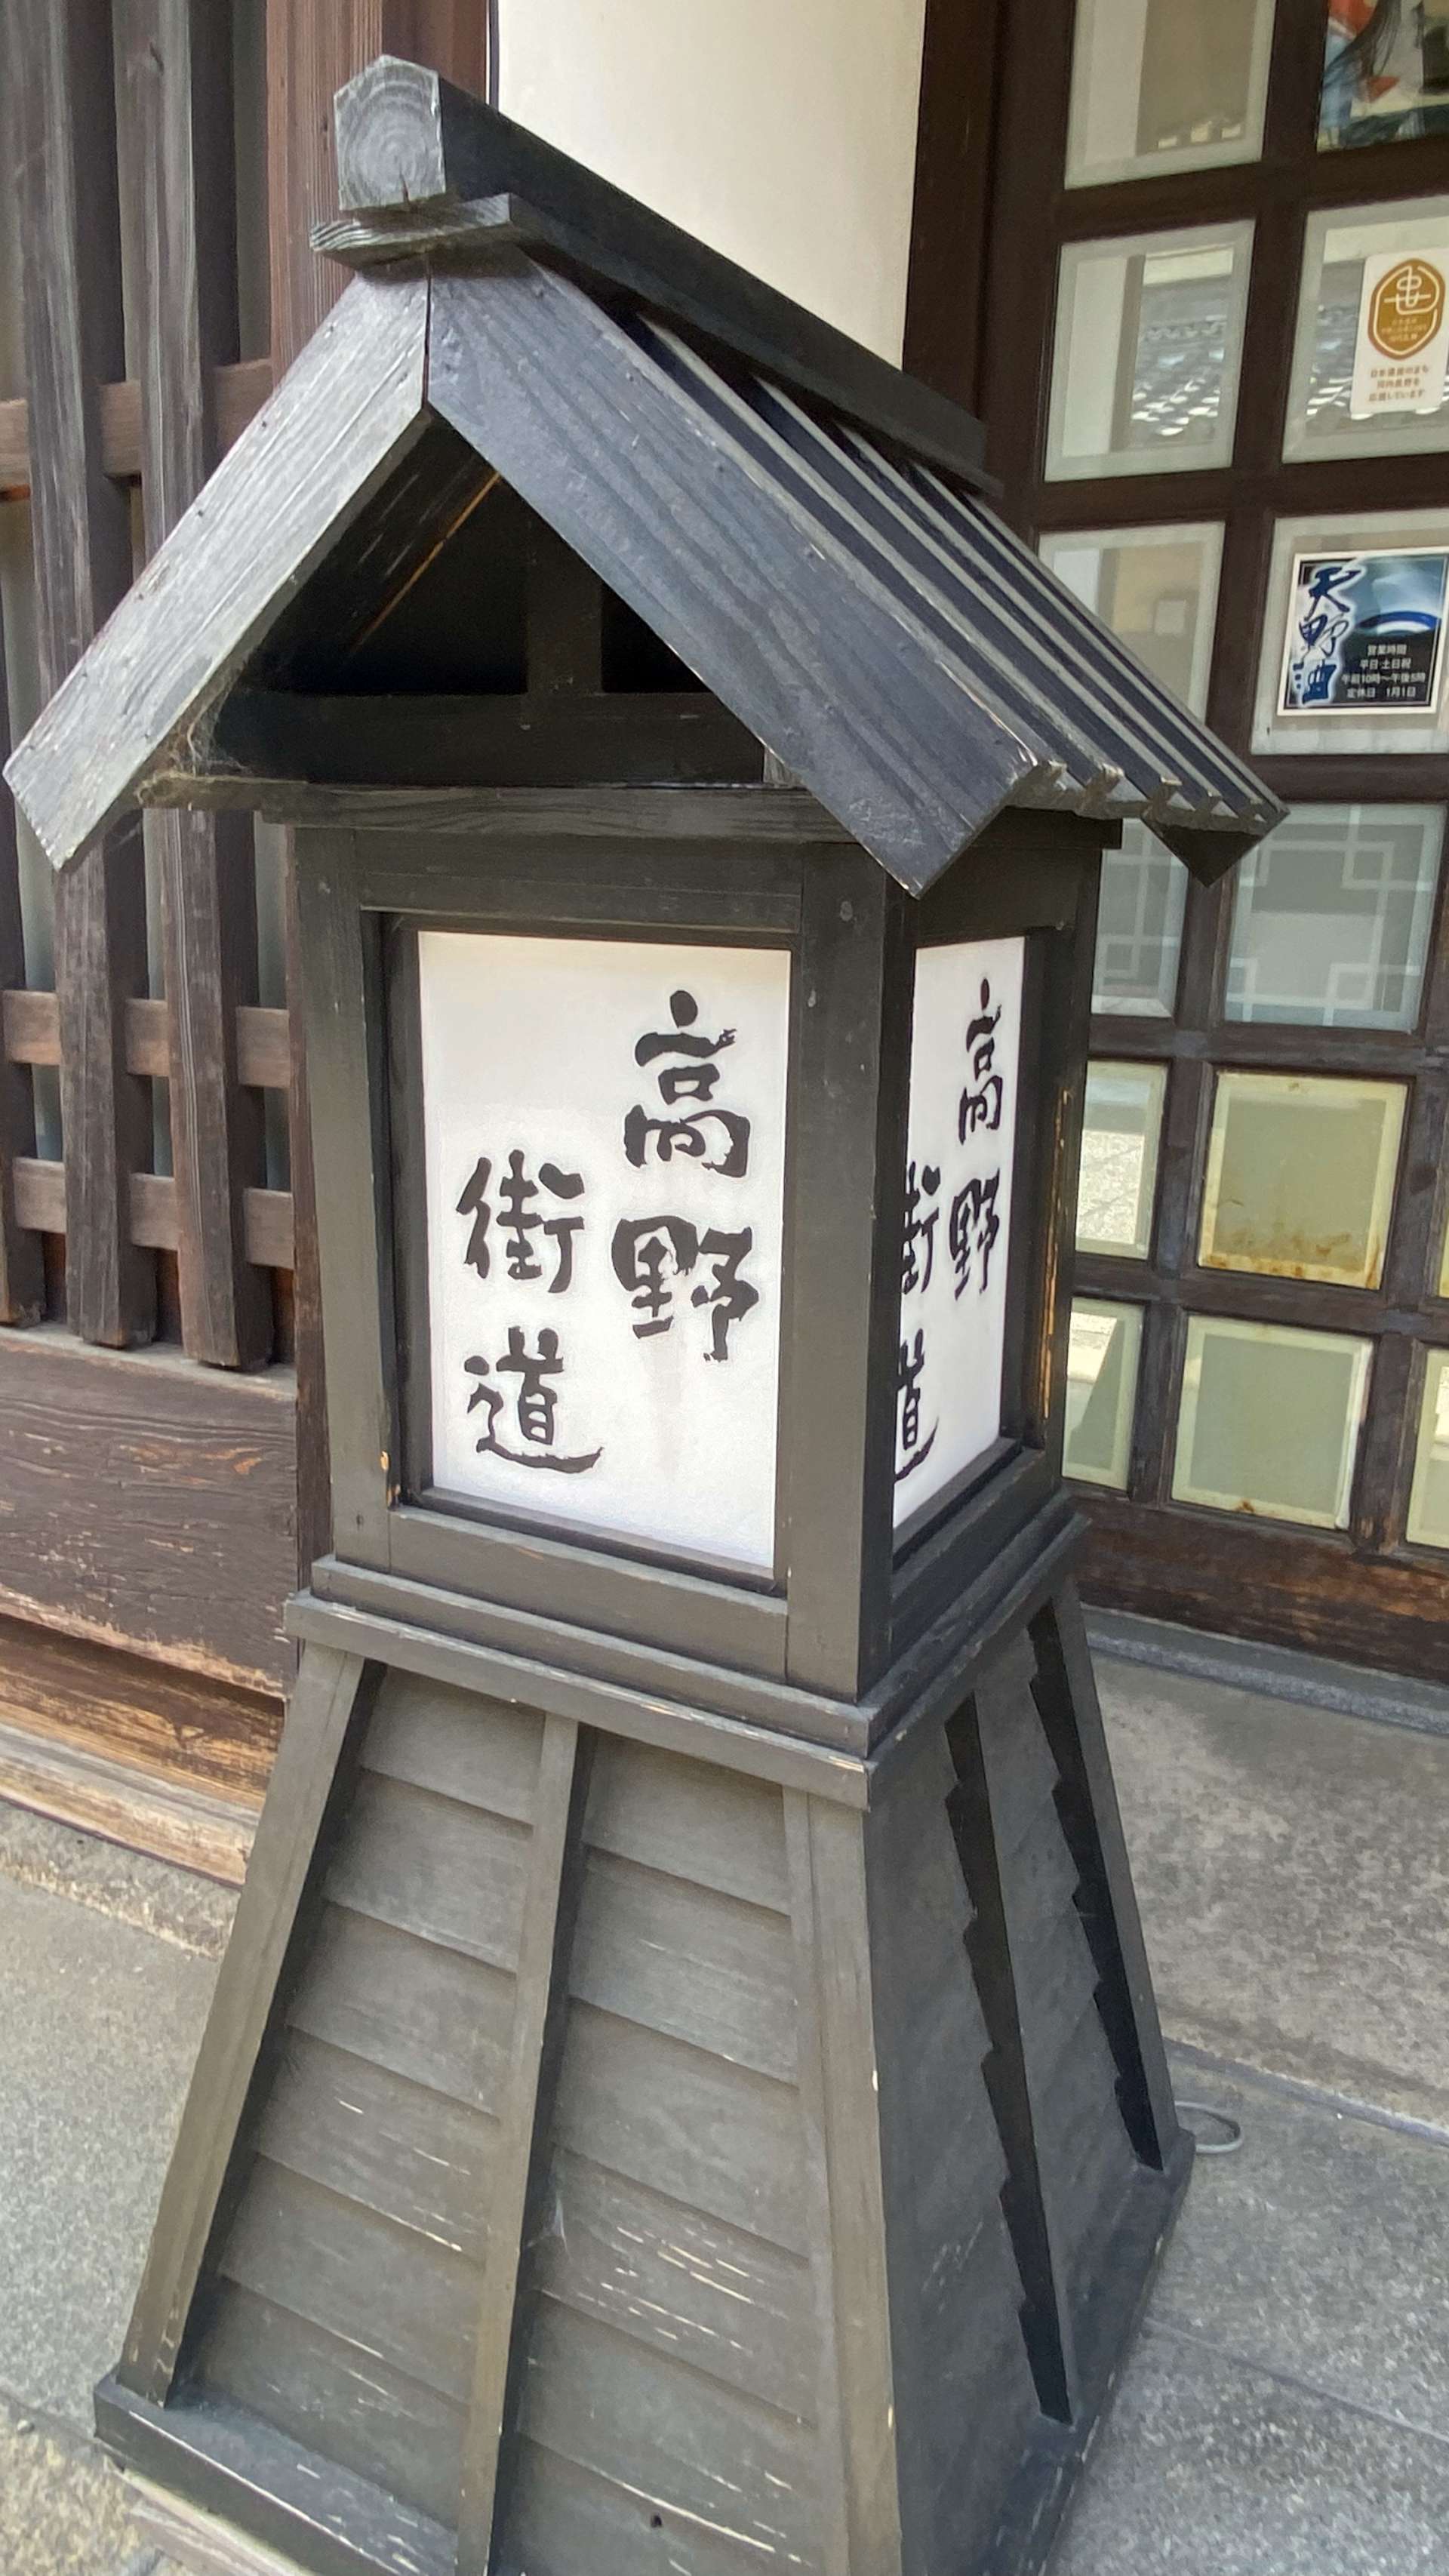 高野
街道
高野
街道
日本遺産のまち
河内長野を
応援しています
天野酒
営業時間
平日・土日祝
午前10時〜午後5時
定休日 1月1日